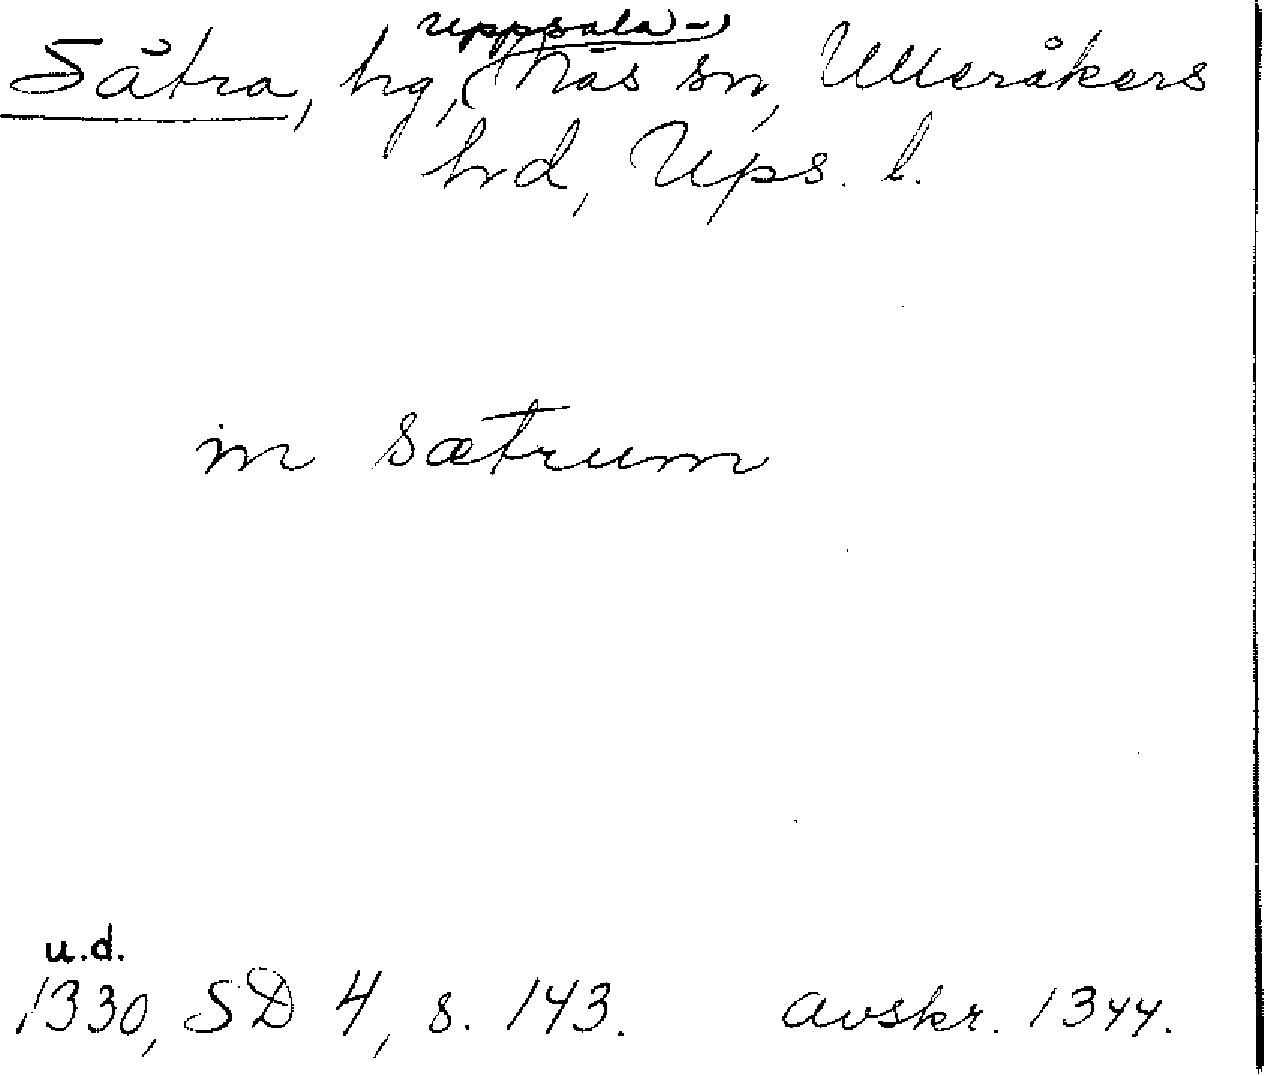 Uppsala-
Sätra, hg, Näs sn, Ulleråkers
hd, Ups. l.
in sætrum
u.d.
1330, SD 4, s. 143. Avskr. 1344.